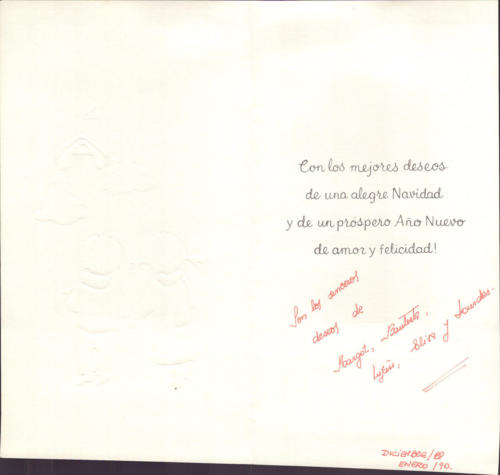 Con los mejores deseos
de una alegre Navidad
y de un próspero Año Nuevo
de amor y felicidad!
Son los sinceros
deseos de
Margot, Bautista,
Elisa y Lourdes.
DICIEMBRE/89
ENERO/90.